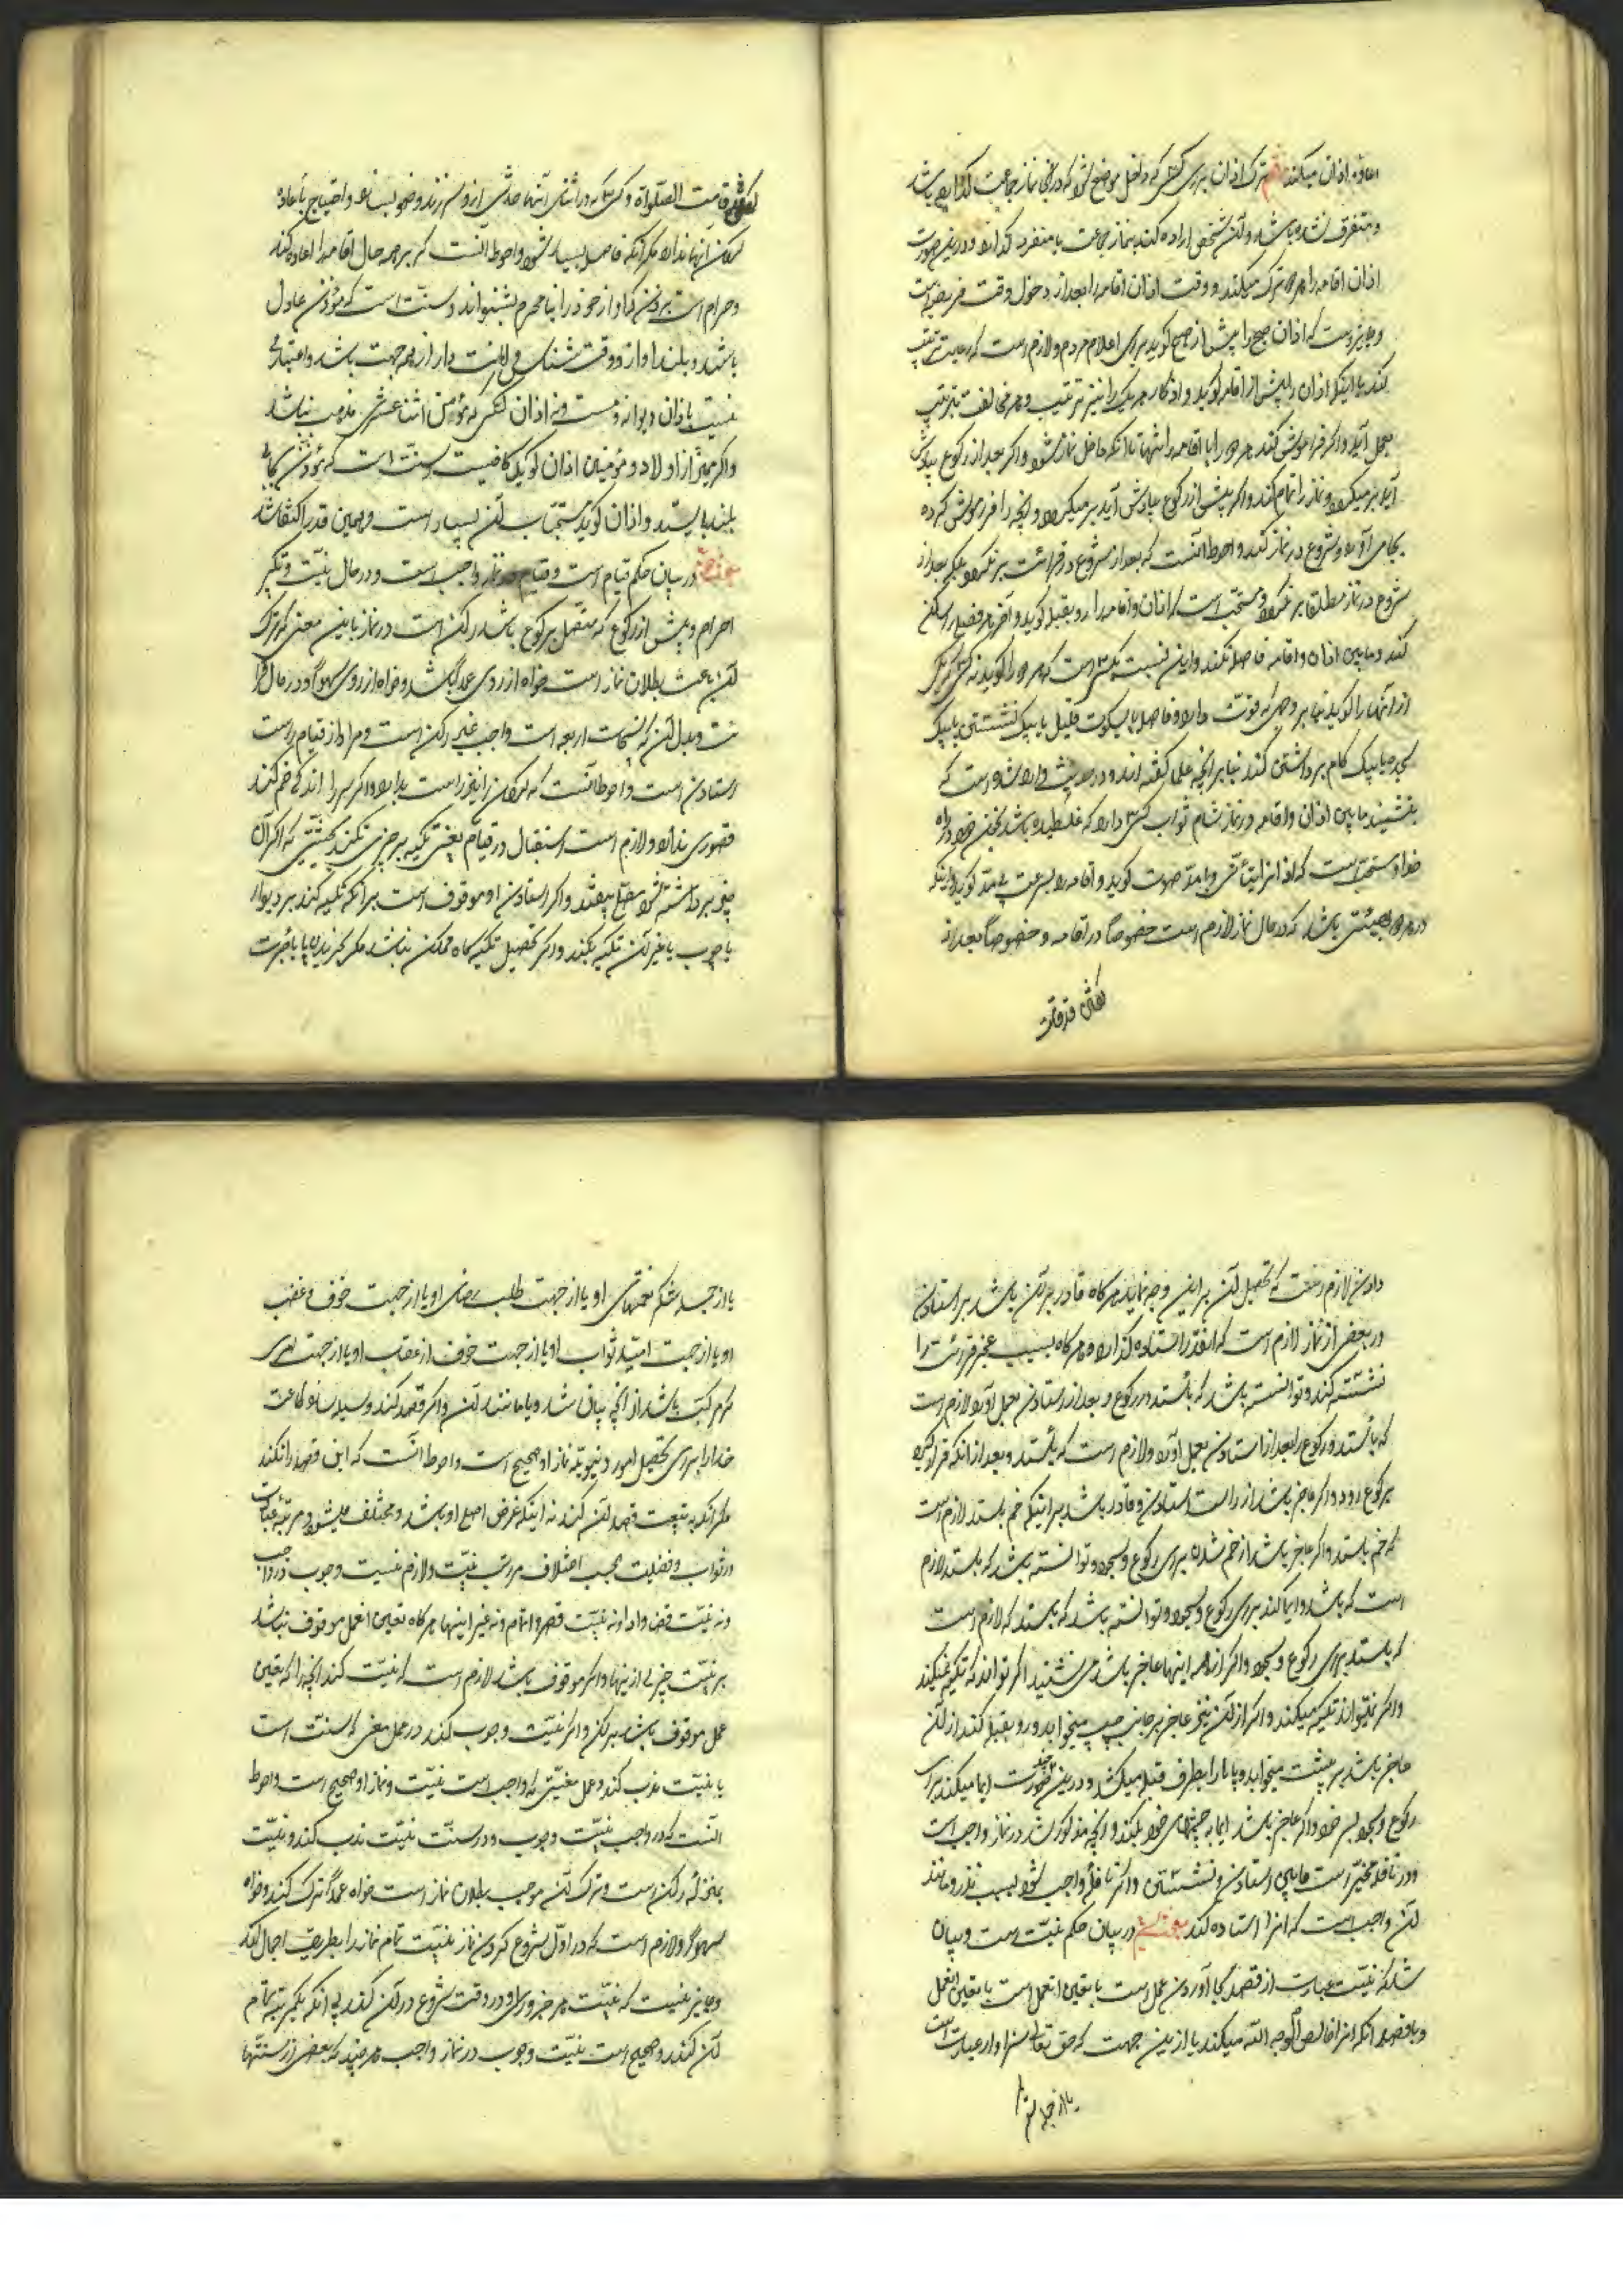 اعاده اذان میکند ترک اذان برای کسی که داخل موضعی شود که در آنجا نماز جماعت باشد
و متفرق نشده باشند و آن شخص اراده کند نماز جماعت یا منفرد و درین صورت
اذان اقامه را هر دو ترک میکند و وقت اذان اقامه بعد از دخول وقت فریضه است
و جایز است که اذان صبح را پیش از صبح کوید برای اعلام مردم و لازم است که رعایت ترتیب
کند با اینکه اذان را پیش از اقامه کوید و اذکار هر یک را نیز ترتیب و هر مخالف ترتیب
بعمل آید و اکر فراموش کند هر دو را یا اقامه را تنها تا آنکه داخل نماز شود و اکر بعد از رکوع بیادش
آید بر نمیکردد و نماز را تمام کند و اکر پیش از رکوع بیادش آید بر میکردد و آنچه را فراموش کرده
بجا می آورد و شروع در نماز کند و احوط آنست که بعد از شروع در قرائت بر نکردد بلکه بعد از
شروع در نماز مطلقا بر نکردد و مستحب است که اذان و اقامه را رو بقبله کوید و آخر هر فصلی را ساکن
کند و مابین اذان و اقامه فاصله کند و این نسبت بکسی است که هر دو را کوید نه کسی که یکی
از آنها را کوید تنها فاصله یا بسکوت قلیل یا بیک نشستن یا بیک
سجده یا بیک کام برداشتن کند بنا بر آنچه علما کفته اند و در حدیث وارد شده است که
بنشیند مابین اذان و اقامه در نماز شام ثواب کسی دارد که غلطیده باشد بخون خود در راه
خدا و مستحب است که اذان را بتأنی و با مد صوت کوید و اقامه را بسرعت بی مد کوید و اینکه
در هر دو بهیئتی باشد که در حال نماز لازم است خصوصاً در اقامه و خصوصاً بعد از
کفتن قد قامت
کفتن قد قامت الصلواة و کسی که در اثنای آنها حدثی از و سر زند وضو بسازد و احتیاج باعاده
کردن آنها ندارد مکر آنکه فاصله بسیار شود و احوط آنست که بر هر حال اقامه را اعاده کند
و حرام است بر زن که آواز خود را بنا محرم بشنواند و سنت است که مؤذن عادل
باشد و بلند آواز و وقت شناس و امانت دار از هر جهت باشد و اعتباری
نیست باذان دیوانه و مست و نه اذان کسی که مؤمن اثنا عشری مذهب نباشد
و اکر ممیز از اولاد مؤمنین اذان کوید کافیست و سنت است که مؤذن بجای
بلند بایستد و اذان کوید و مستحبات آن بسیار است و بهمین قدر اکتفا شد
در بیان حکم قیام است و قیام در نماز واجب است و در حال نیت و تکبیر
احرام و پیش از رکوع که متصل برکوع باشد رکن است در نماز باین معنی که ترک
آن باعث بطلان نماز است خواه از روی عمد باشد و خواه از روی سهو و در حال قرا
ئت و بدل آن که تسبیحات اربعه است واجب غیر رکن است و مراد از قیام راست
استادن است و احوط آنست که کردن را نیز راست بدارد و اکر سر را اندکی خم کند
قصوری ندارد و لازم است استقلال در قیام یعنی تکیه بر چیزی نکند بحیثیتی که اکر آن
چیز برداشته شود مصلی بیفتد و اکر استادن او موقوف است بر آنکه تکیه کند بر دیوار
یا چوب یا غیر آن تکیه بکند و اکر تحصیل تکیه کاه ممکن نباشد مکر بخریدن یا باجرت
دادن لازم است که تحصیل آن بر این وجه نماید هر کاه قادر بر آن باشد بر استادن
در بعضی از نماز لازم است که آنقدر را ستاده کذارد و هر کاه بسبب عجز قرائت را
نشسته کند و توانسته باشد که بایستد در رکوع و بعد از استادن بعمل آورد لازم است
که بایستد و رکوع را بعد از استادن بعمل آورد و لازم است که بایستد و بعد از آنکه قرار کیرد
برکوع رود و اکر عاجز باشد از راست استادن و قادر باشد بر اینکه خم بایستد لازم است
که خم بایستد و اکر عاجز باشد از خم شدن برای رکوع و سجود و توانسته باشد که بایستد لازم
است که باشد و ایما کند برای رکوع و سجود و توانسته باشد که بایستد که لازم است
که بایستد برای رکوع و سجود و اکر از همه اینها عاجز باشد می نشیند اکر تواند که تکیه نمیکند
و اکر نمیتواند تکیه میکند و اکر از آن نیز عاجز بر جانب چپ میخوابد و رو بقبله کند از آن
عاجز باشد بر پشت میخوابد و پاها را بطرف قبله میکند و درین چند صورت ایما میکند برای
رکوع و سجود بسر خود و اکر عاجز باشد ایما بچشمهای خود بکند و آنچه مذکور شد در نماز واجب است
و در نافله مخیر است مابین استادن و نشستن و اکر نافله واجب شود بسبب نذر و مانند
آن واجب است که آنرا استاده کند در بیان حکم نیت است و بیان
شد که نیت عبارت از قصد بجا آوردن عمل است با تعیین آنعمل است یا تعیین آنعمل
و با قصد آنکه آنرا خالصاً لوجه الله میکند یا ازین جهت که حق تعالی سزاوار عبادت است
یا از جهة شکر
یا از جهة شکر نعمتهای او یا از جهت طلب رضای او یا از جهت خوف و غضب
او یا از جهت امید ثواب او یا از جهت خوف از عقاب او یا از جهت امری
که مرکب باشد از آنچه بیان شد و یا مانند آن و اکر قصد کند وسیله سازد طاعت
خدا را برای تحصیل امور دنیویه نماز او صحیح است و احوط آنست که این قصد را نکند
مکر آنکه به تبعیت قصد آن کند نه اینکه غرض اصلی او باشد و مختلف میشود مرتبه عبادات
در ثواب و فضیلت بحسب اختلاف مراتب نیت و لازم نیست وجوب در واجب
و نه نیت قضا و ادا و نه نیت قصر و اتمام و نه غیر اینها هر کاه تعیین آنعمل موقوف نباشد
بر نیت چیزی از اینها و اکر موقوف باشد لازم است که نیت کند آنچه را که تعیین
عمل موقوف باشد بر آن و اکر نیت وجوب کند در عمل معینی که سنت است
یا نیت ندب کند در عمل معینی که واجب است نیت و نماز او صحیح است و احوط
آنست که در واجب نیت وجوب و در سنت نیت ندب کند و نیت
بمنزله رکن است و ترک آن موجب بطلان نماز است خواه عمداً ترک کند و خواه
سهواً و لازم است که در اول شروع کردن نماز نیت تمام نماز را بطریق اجمال کند
و جایز نیست که نیت هر جزو را در وقت شروع در آن کند بی آنکه یکمرتبه تمام
آن کند و صحیح است نیت وجوب در نماز واجب هر چند که بعضی از سنتها